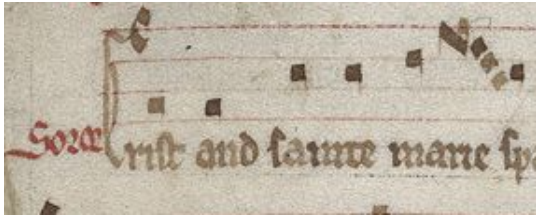 Soror Crist and sainte marie sƿa